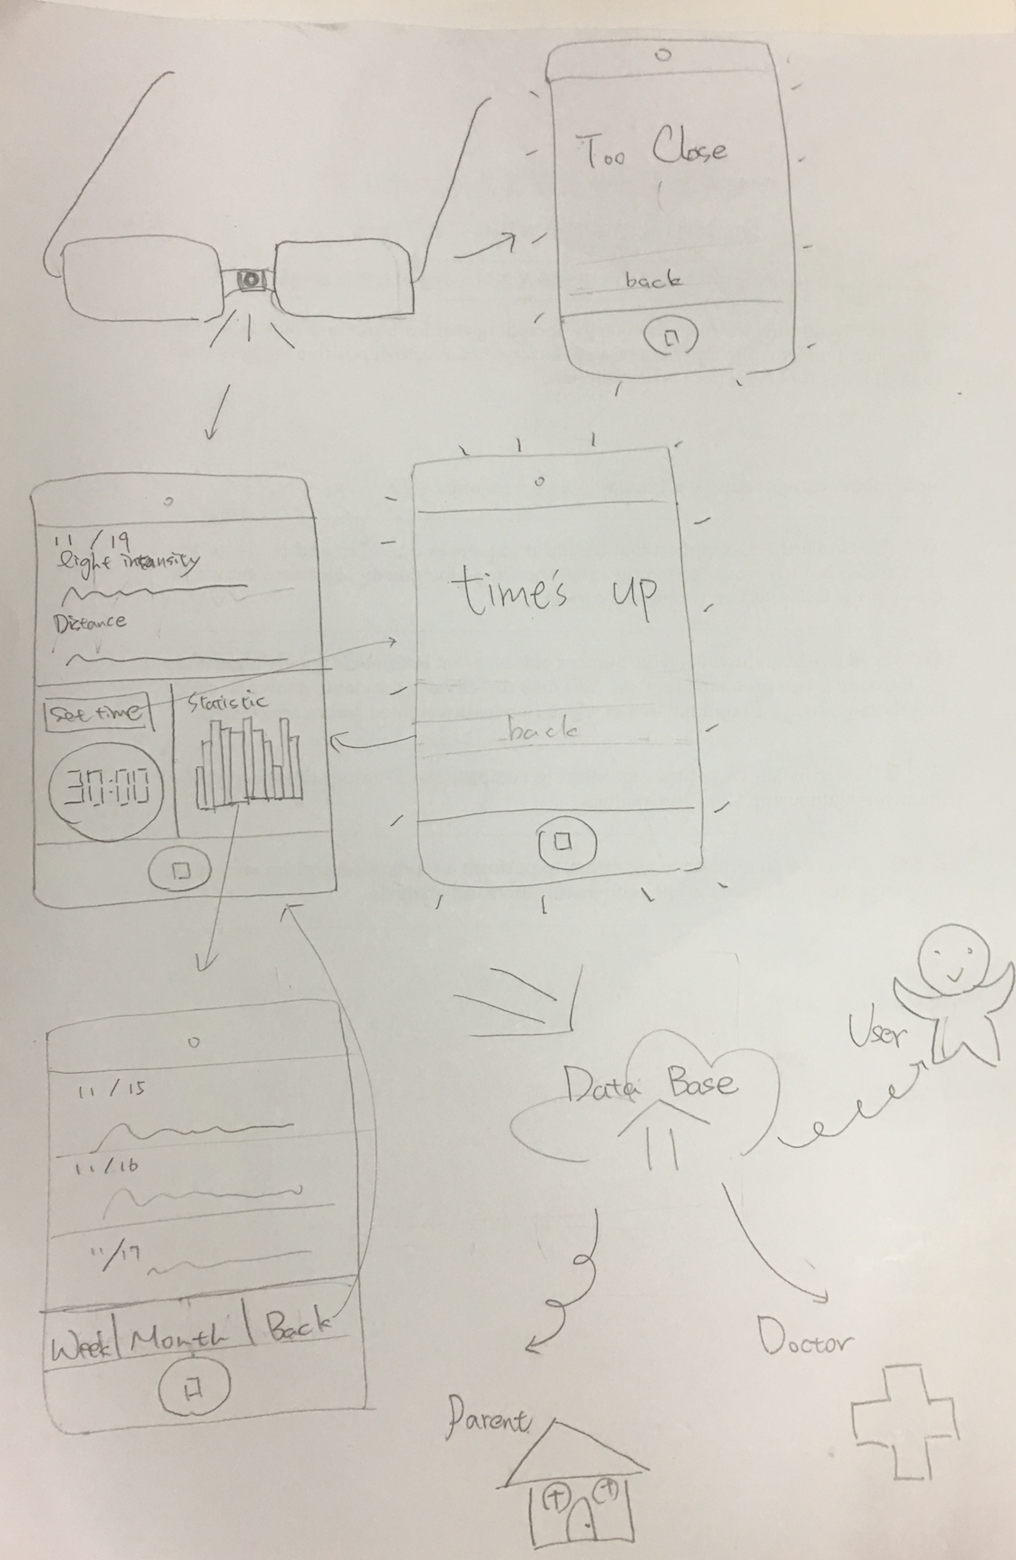 Too Close
back
11/19
light intansity
Distance
Set time
Statistic
30:00
time's up
back
11/15
11/16
11/17
Week Month Back
Data Base
User
Parent
Doctor